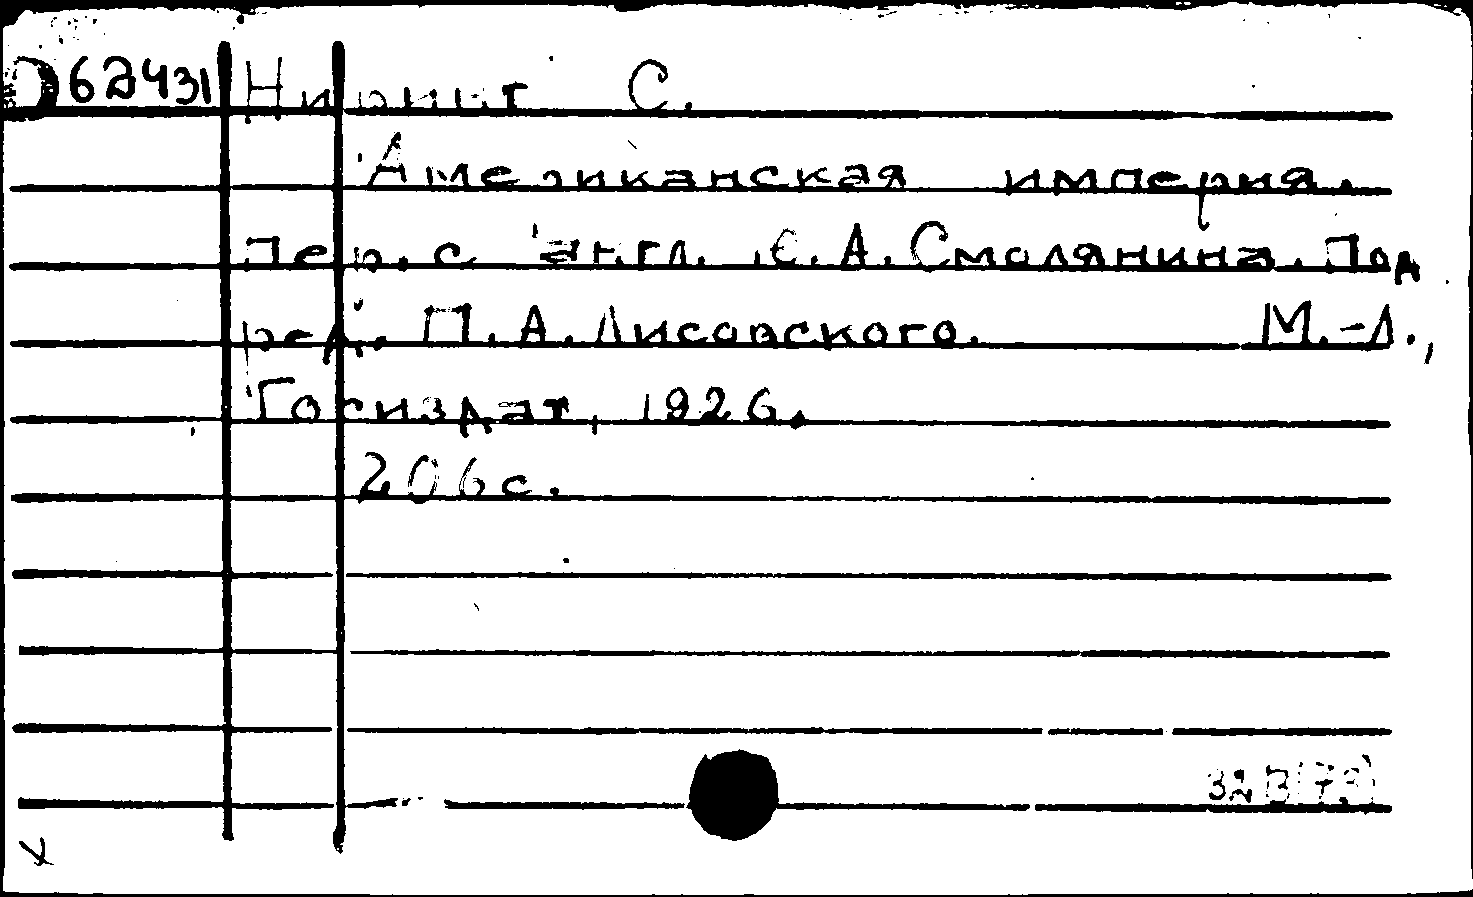 D62431 Ниринг С.
Американская империя.
Пер. с англ. Е.А. Смолянина. Под
ред. П.А. Лисовского. М.-Л.,
Госиздат, 1926.
206 с.
323(73)